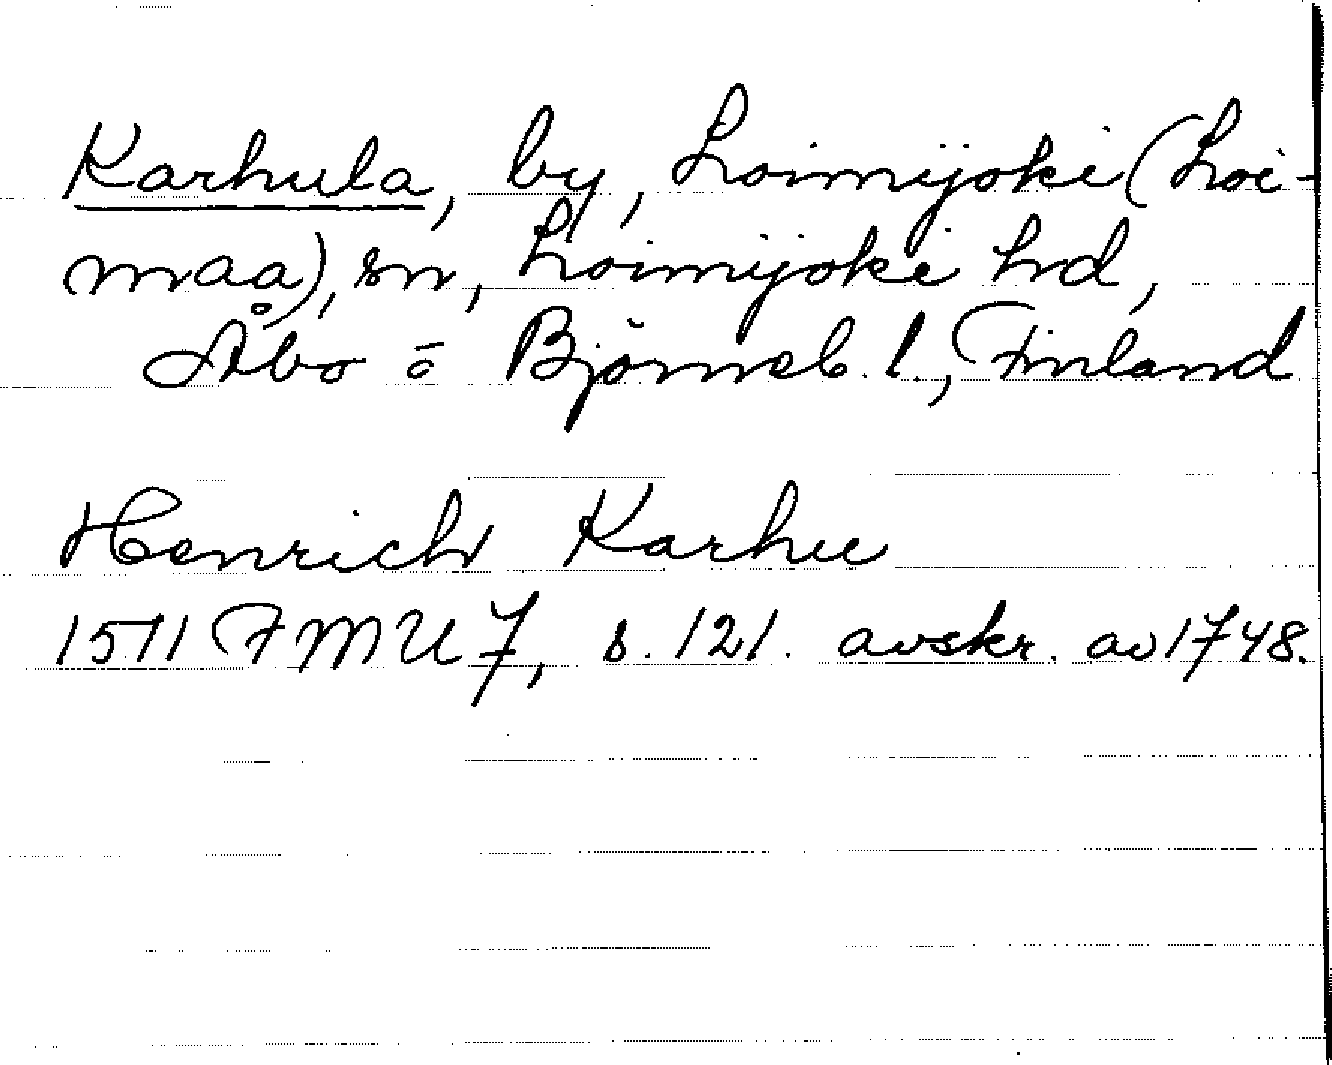 Karhula, by, Loimijoki (Loi-
maa), sn, Loimijoki hd,
Åbo o Björneb. l., Finland
Henrich Karhu
1511 FMU 7, s. 121. avskr. av 1748.